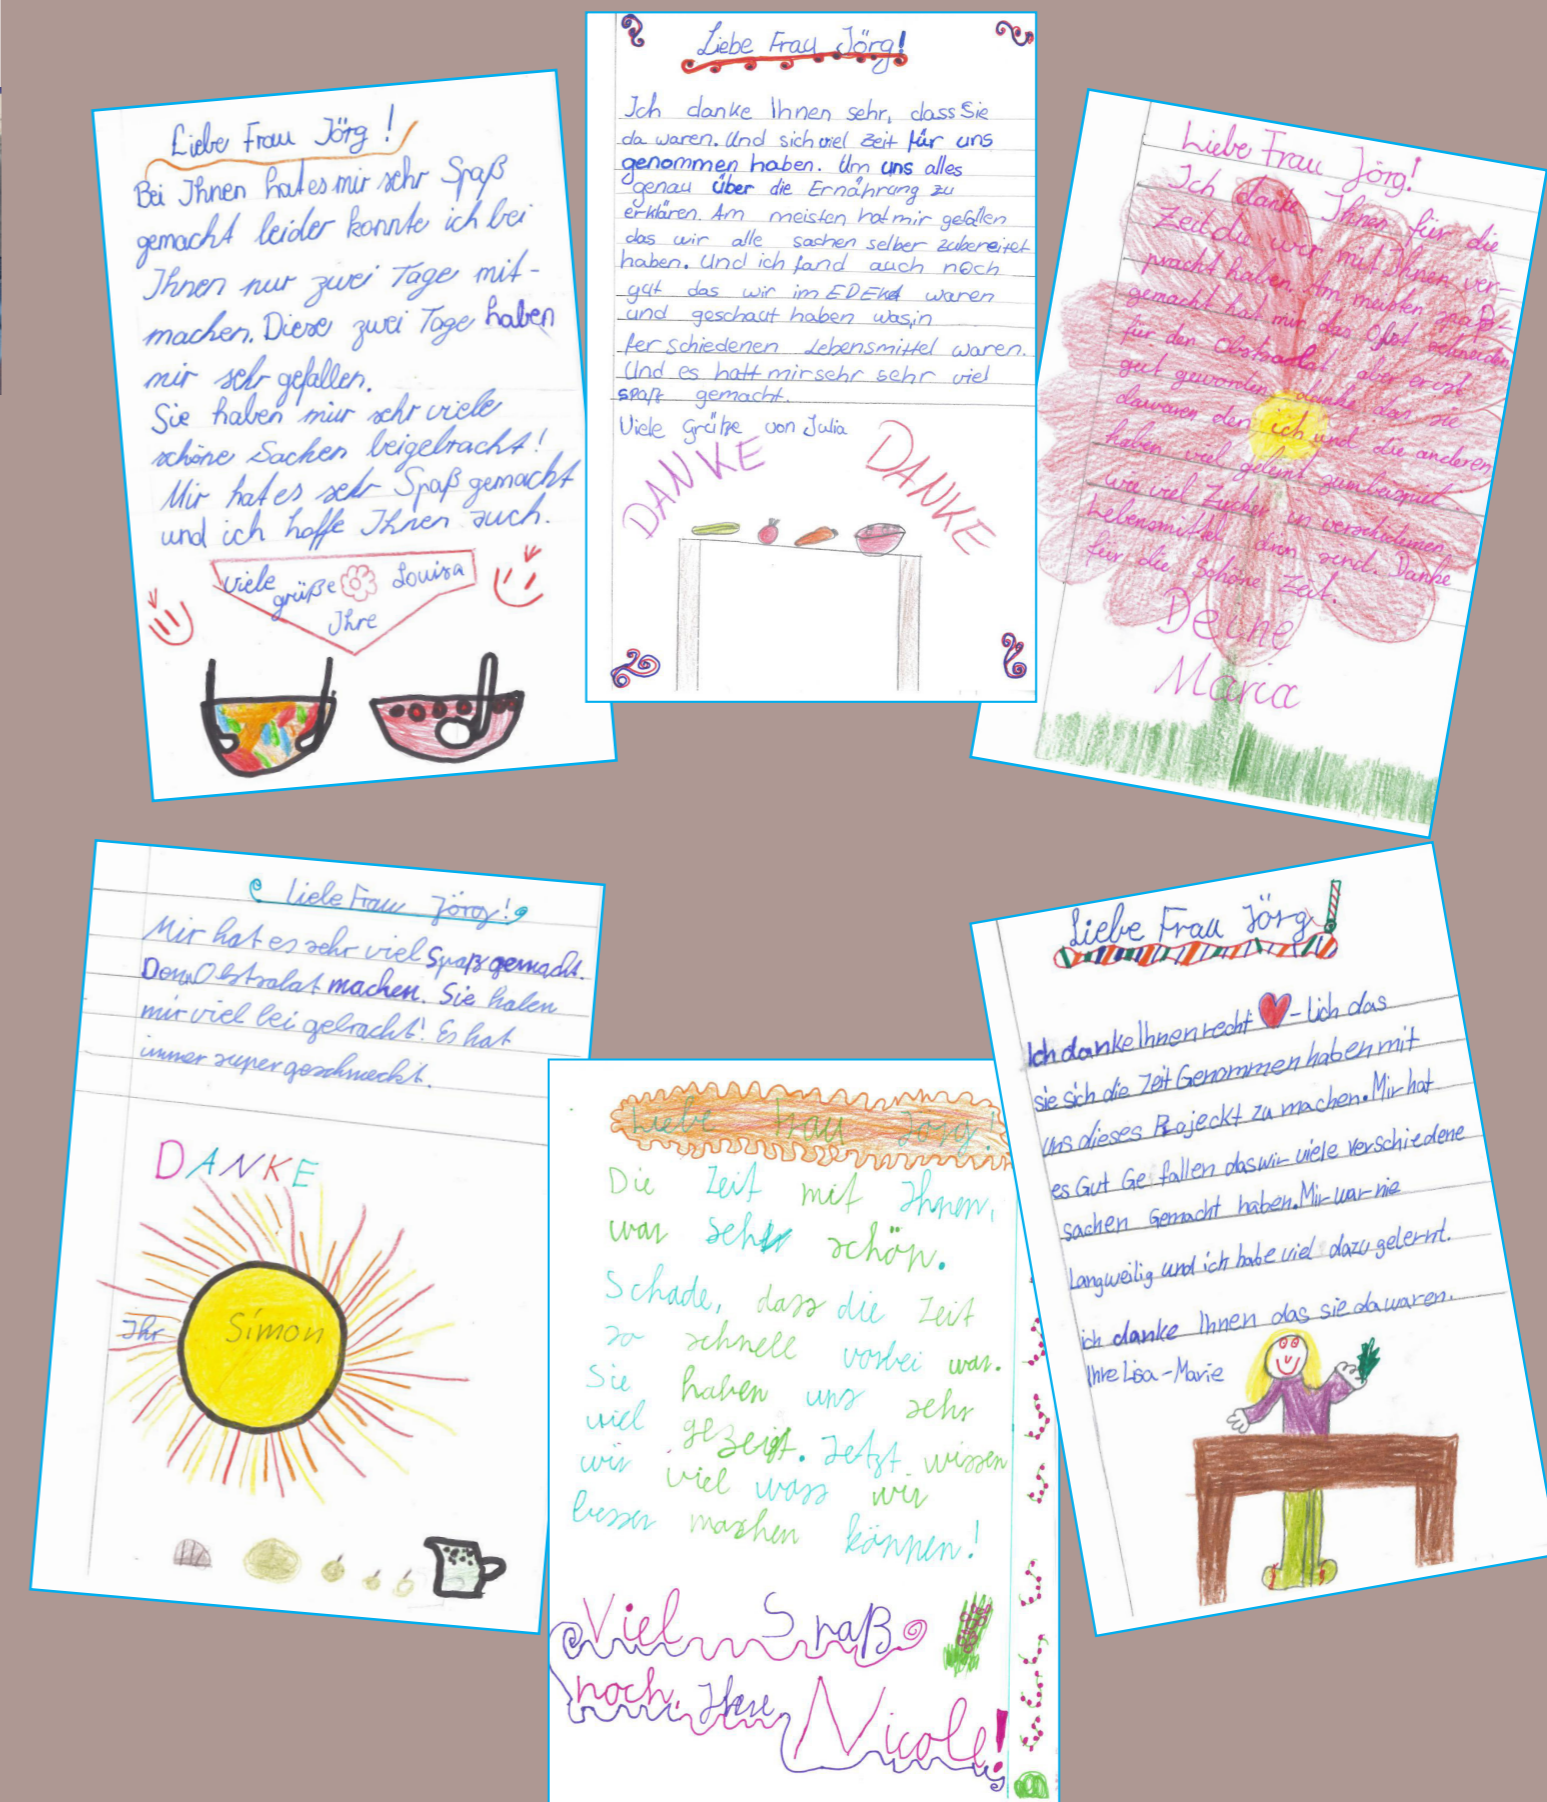 Liebe Frau Jörg!
Bei Ihnen hat es mir sehr Spaß
gemacht leider konnte ich bei
Ihnen nur zwei Tage mit-
machen. Diese zwei Tage haben
mir sehr gefallen.
Sie haben miur sehr viele
schöne Sachen beigebracht!
Mir hat es sehr Spaß gemacht
und ich hoffe Ihnen auch.
viele
grüße Louisa
Ihre
Liebe Frau Jörg!
Ich danke Ihnen sehr, dass Sie
da waren. Und sich viel Zeit für uns
genommen haben. Um uns alles
genau über die Ernährung zu
erklären. Am meisten hat mir gefallen
das wir alle sachen selber zubereitet
haben. Und ich fand auch noch
gut das wir im EDEKA waren
und geschaut haben was in
ferschiedenen Lebensmittel waren.
Und es hatt mir sehr sehr viel
spaß gemacht.
Viele Grüße von Julia
DANKE DANKE
Liebe Frau Jörg!
Ich danke Ihnen für die
Zeit die wir mit Ihnen ver-
pracht haben. Am meisten spaß
gemacht hat mir das Obst schneiden
für den Obstsalat aber er ist
gut geworden danke das sie
dawaren den ich und die anderen
haben viel gelernt zumbeispiel
wie viel Zucker in verschidenen
Lebensmittel drin send. Danke
für die schöne Zeit.
Deine
Maria
Liebe Frau Jörg!
Mir hat es sehr viel Spaß gemacht.
Den Obstsalat machen. Sie haben
mir viel bei gebracht! Es hat
immer super geschmeckt.
DANKE
Ihr Simon
Liebe Frau Jörg!
Die Zeit mit Ihnen,
war sehr schön.
Schade, dass die Zeit
so schnell vorbei war.
Sie haben uns sehr
viel gezeigt. Jetzt wissen
wir viel wass wir
besser machen können!
Viel Spaß
noch, Ihre Nicole!
Liebe Frau Jörg!
Ich danke Ihnen recht -lich das
sie sich die Zeit Genommen haben mit
uns dieses Projeckt zu machen. Mir hat
es Gut Ge fallen das wir viele verschiedene
sachen Gemacht haben. Mir war nie
Langweilig und ich habe viel dazu gelernt.
ich danke Ihnen das sie da waren.
Ihre Lisa-Marie